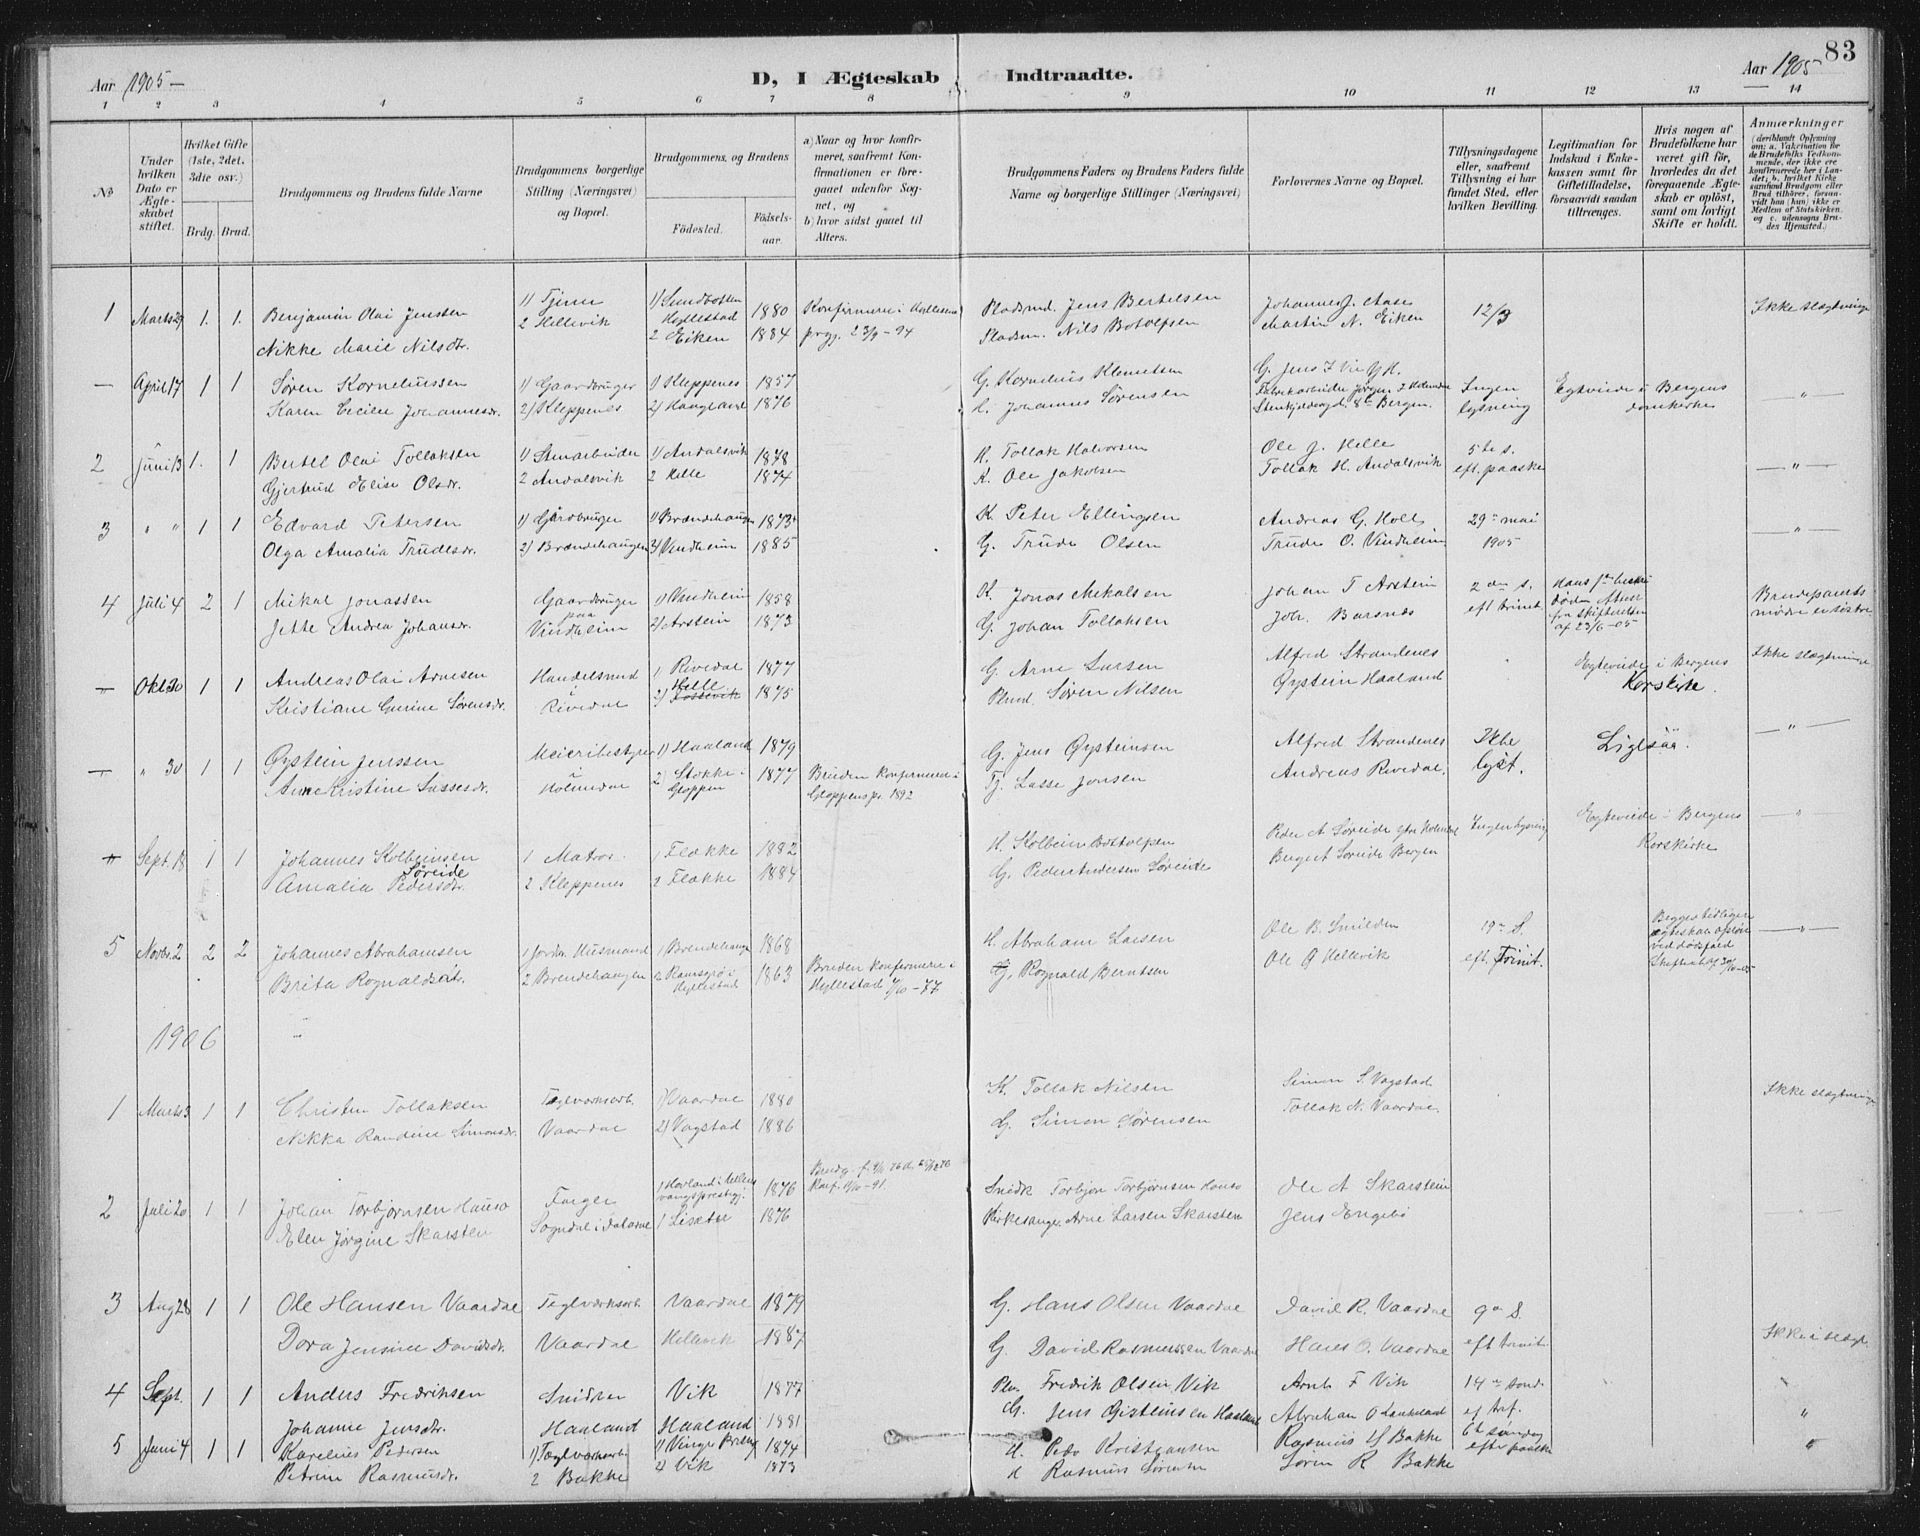 83
Aar 1905 —
D, I Ægteskab Indtraadte.
Aar 1905
1 2 3 4 5 6 7 8 9 10 11 12 13 14
No
Under hvilken Dato er Ægteskabet stiftet.
Hvilket Gifte (1ste, 2det. 3die osv.)
Brdg. Brud.
Brudgommens og Brudens fulde Navne
Brudgommens borgerlige Stilling (Næringsvei) og Bopæl.
Brudgommens, og Brudens
Födested.
Födselsaar.
a) Naar og hvor konfirmeret, saafremt Konfirmationen er foregaaet udenfor Sognet, og
b) hvor sidst gaaet til Alters.
Brudgommens Faders og Brudens Faders fulde Navne og borgerlige Stillinger (Næringsvei)
Forlovernes Navne og Bopæl.
Tillysningsdagene eller, saafremt Tillysning ei har fundet Sted, efter hvilken Bevilling.
Legitimation for Indskud i Enkekassen samt for Giftetilladelse, forsaavidt saadan tiltrænges.
Hvis nogen af Brudefolkene har været gift för, hvorledes da det foregaaende Ægteskab er oplöst, samt om lovligt Skifte er holdt.
Anmærkninger
(deriblandt Oplysning om: a. Vakcination for de Brudefolks Vedkommende, der ikke ere konfirmerede her i Landet; b. hvilket Kirkesamfund Brudgom eller Brud tilhörer, forsaavidt han (hun) ikke er Medlem af Statskirken, og c. udensogns Brudes Hjemsted.)
1 Marts 29 1. 1. Benjamin Olai Jenssen 1) Tjener 1) Sundbotten Hyllestad 1880 Konfirmeret i Hyllestad Pladsmd. Jens Bertelsen Johannes J. Aase 12/3 Ikke slægtninge
Nikke Marie Nilsdr. 2 Hellevik 2 Eiken 1884 prgj. 23/9 - 94 Pladsm. Nils Botolfsen Martin N. Eiken
— April 17 1 1 Søren Korneliussen 1) Gaardbruger 1) Kleppenes 1857 G. Kornelius Klemetsen G. Jens Ingen Egteviede i Bergens — " —
Karen Cecilie Johannesdr. 2) Kleppenes 2) Haugland 1876 H. Johannes Sørensen Fabrikarbeider Jørgen J. Bergen. lysning domkirke
2 Juni 13 1. 1 Bertel Olai Tollaksen 1) Stenarbeider 1) Andalsvik 1878 K. Tollak Halvorsen Ole J. Hille 5te s. — " —
Gjertrud Elise Olsdr. 2 Andalsvik 2 Hille 1874 K. Ole Jakobsen Tollak H. Andalsvik eft. paaske
3 " " 1 1 Edvard Petersen 1) Gårdbruger 1) Brændehaugen 1873 K. Peter Ellingsen Andreas G. Holt 29de mai — " —
Olga Amalia Trudesdr. 2) Brændehaugen 2) Vindheim 1885 G. Trude Olsen Trude O. Vindheim 1905
4 Juli 4 2 1 Mikal Jonassen Gaardbruger paa 1) Vindheim 1858 K. Jonas Mikalsen Johan T Arstein 2den s. Brudeparrets
Jette Andrea Johansdr. Vindheim 2) Arstein 1873 G. Johan Tollaksen Joh. Barsnes eft trinit. fra skifteretten af 23/6 - 05 mødre er søstre
— Okt 20 1 1 Andreas Olai Arnesen Handelsmd i 1 Rivedal 1877 G. Arne Larsen Alfred Strandenes Egteviede i Bergens Ikke slægtninge
Kristiane Gurine Sørensdr. Rivedal 2) Hille 1875 Plmd. Søren Nilsen Øystein Haaland Korskirke.
— " 30 1 1 Øystein Jenssen Meieribestyrer i 1) Haaland 1879 G. Jens Øysteinsen Alfred Strandenes Ikke Ligesaa. — " —
Anne Kristine Lassesdr. Holmedal 2) Stokke i Gloppen 1877 Bruden konfirmeret i Gloppens pr. 1892 Tj. Lasse Jonsen Andreas Rivedal lyst.
Sept. 18 1 1 Johannes Kolbeinsen 1 Matros 1 Flekke 1882 H. Kolbein Bottolfsen Peder A Søreide Ingen lysning Egteviede i Bergens — " —
Amalia Pedersdr. Søreide 2 Kleppenes 2 Flekke 1884 G. Peder Andersen Søreide Berget Søreide Bergen Korskirke
5 Novbr. 2 2 2 Johannes Abrahamsen 1 Jordbr. Husmand 1 Brendehaugen 1868 H. Abraham Larsen Ole B. Smilden 19de S. Begges tidligere ægteskab opløst — " —
Brita Rognaldsdr. 2 Brendehaugen 2 Ramsgrø i Hyllestad 1863 Bruden konfirmeret i Hyllestad 7/10 - 77 G. Rognald Berntsen Ole G Hellevik eft. Trinit. ved dødsfald
1906
1 Marts 3 1 1 Christen Tollaksen Teglverksarb. 1) Vaardal 1880 K. Tollak Nilsen Simon S. Vagstad Ikke slægtninge
Nikka Randine Simonsdr. Vaardal 2) Vagstad 1886 G. Simon Sørensen Tollak N. Vaardal.
2 Juli 20 1 1 Johan Torbjørnsen Hauso Farger 1 Hovland i Ullensvangs prestegj. 1876 Konf. 11/10 - 91. Snidk Torbjør Torbjørnsen Hauso Ole A Skarstein
Elen Jørgine Skarsten Sogndal i Dalarne 1 Liseter 1876 Kirkesanger Arne Larsen Skarsten Jens Engebø — " —
3 Aug 28 1 1 Ole Hansen Vaardal Teglværksarb. Vaardal 1879 G. Hans Olsen Vaardal David R. Vaardal 9de S.
Dora Jensine Davidsdr. Vaardal Hellevik 1887 G. David Rasmussen Vaardal Hans O. Vaardal eft trinit. Ikke i slægt
4 Sept. 1 1 Anders Fredriksen Snidker Vik 1877 Plm. Fredrik Olsen Vik Arnt F Vik 14de sønd.
Johanne Jensdr. Haaland Haaland 1881 G. Jens Øisteinsen Haaland Abraham O ef tref. "
5 Juni 4 1 1 Karelius Pedersen 1) Teglverksarb. 1874 H. Peder Kristiansen Rasmus H Bakke 6te søndag "
Petrine Rasmusdr. 2 Bakke 2) Vik 1873 H Rasmus Sørensen Søren R Bakke efter paaske